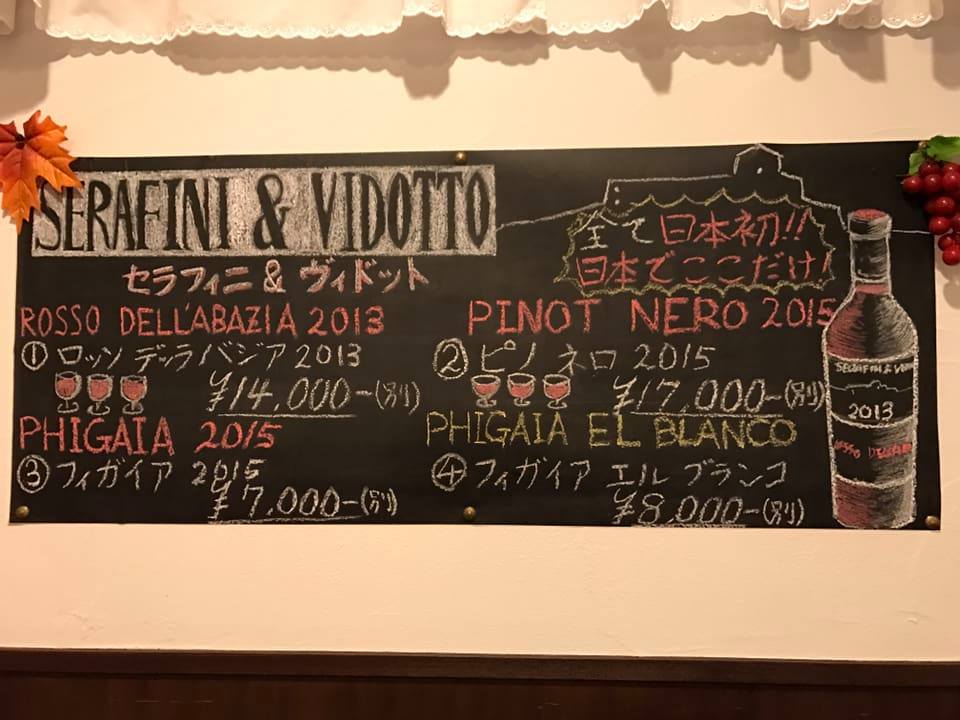 SERAFINI & VIDOTTO
セラフィニ & ヴィドット
全て日本初!!
日本でここだけ!
ROSSO DELL'ABAZIA 2013
① ロッソ デッラバジア 2013
¥14,000-(別)
PINOT NERO 2015
② ピノ ネロ 2015
¥17,000-(別)
PHIGAIA 2015
③ フィガイア 2015
¥7,000-(別)
PHIGAIA EL BLANCO
④ フィガイア エル ブランコ
¥8,000-(別)
SERAFINI & VID
2013
ROSSO DELL'ABA